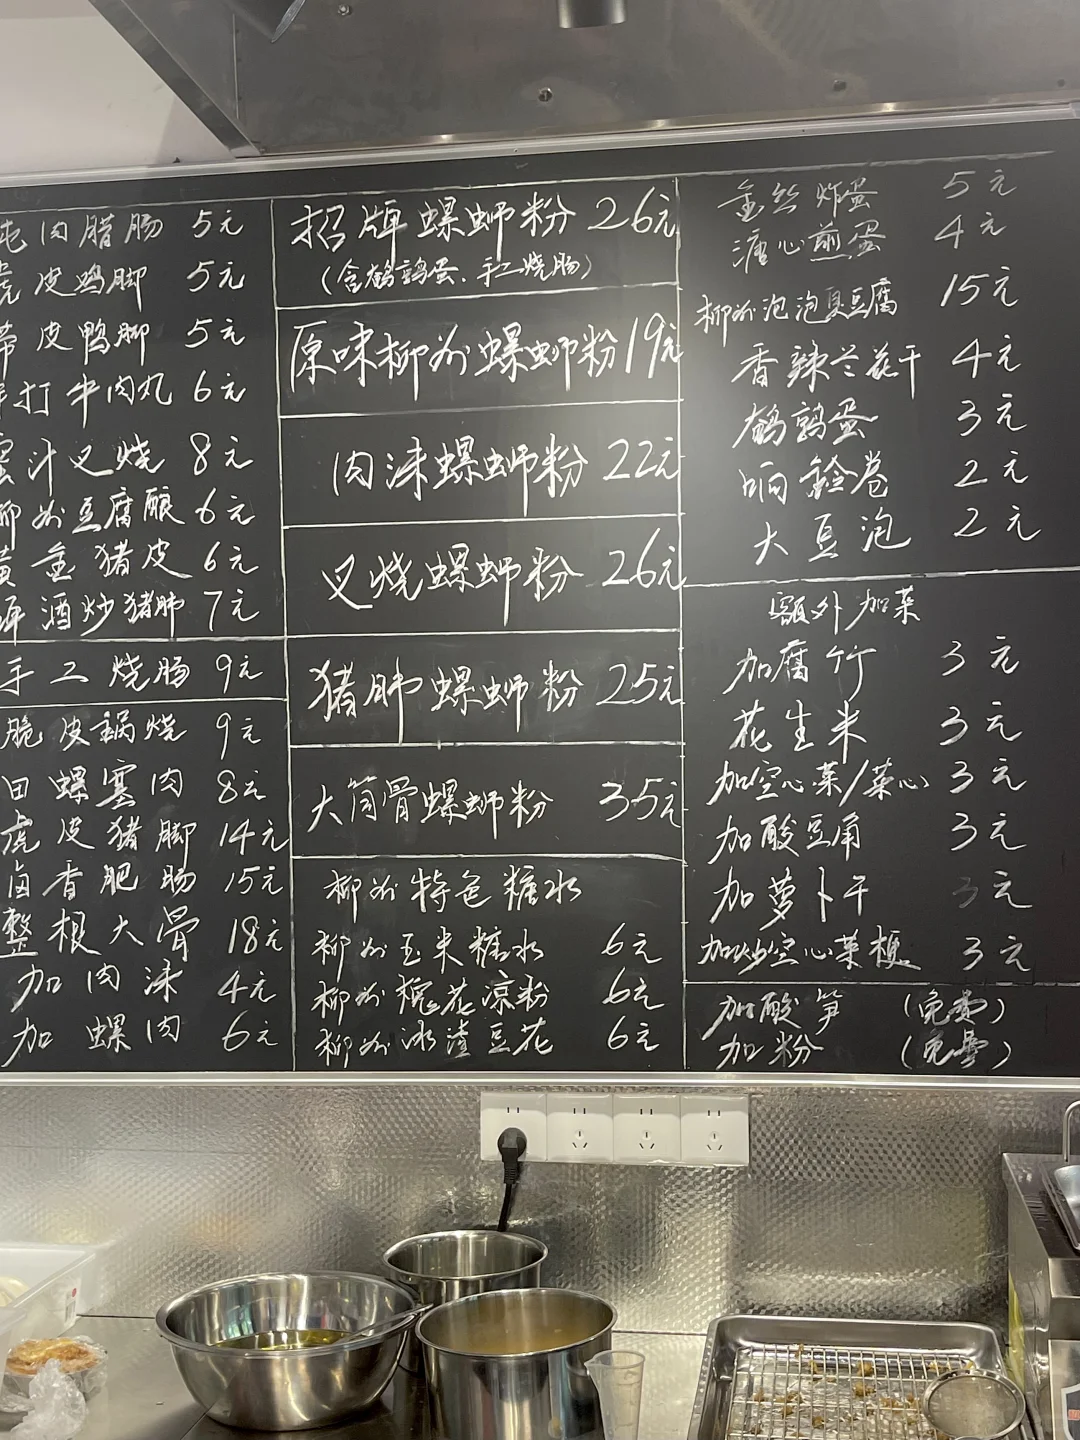 肉腊肠 5元
皮鸡脚 5元
皮鸭脚 5元
打牛肉丸 6元
汁叉烧 8元
州豆腐酿 6元
黄金猪皮 6元
酒炒猪肺 7元
手工烧肠 9元
脆皮锅烧 9元
田螺塞肉 8元
虎皮猪脚 14元
卤香肥肠 15元
整根大骨 18元
加肉沫 4元
加螺肉 6元
招牌螺蛳粉 26元
(含鹌鹑蛋、手工烧肠)
原味柳州螺蛳粉 19元
肉沫螺蛳粉 22元
叉烧螺蛳粉 26元
猪肺螺蛳粉 25元
大筒骨螺蛳粉 35元
柳州特色糖水
柳州玉米糖水 6元
柳州槐花凉粉 6元
柳州冰渣豆花 6元
金丝炸蛋 5元
溏心煎蛋 4元
柳州泡泡臭豆腐 15元
香辣兰花干 4元
鹌鹑蛋 3元
响铃卷 2元
大豆泡 2元
额外加菜
加腐竹 3元
花生米 3元
加空心菜/菜心 3元
加酸豆角 3元
加萝卜干 3元
加炒空心菜梗 3元
加酸笋 (免费)
加粉 (免费)